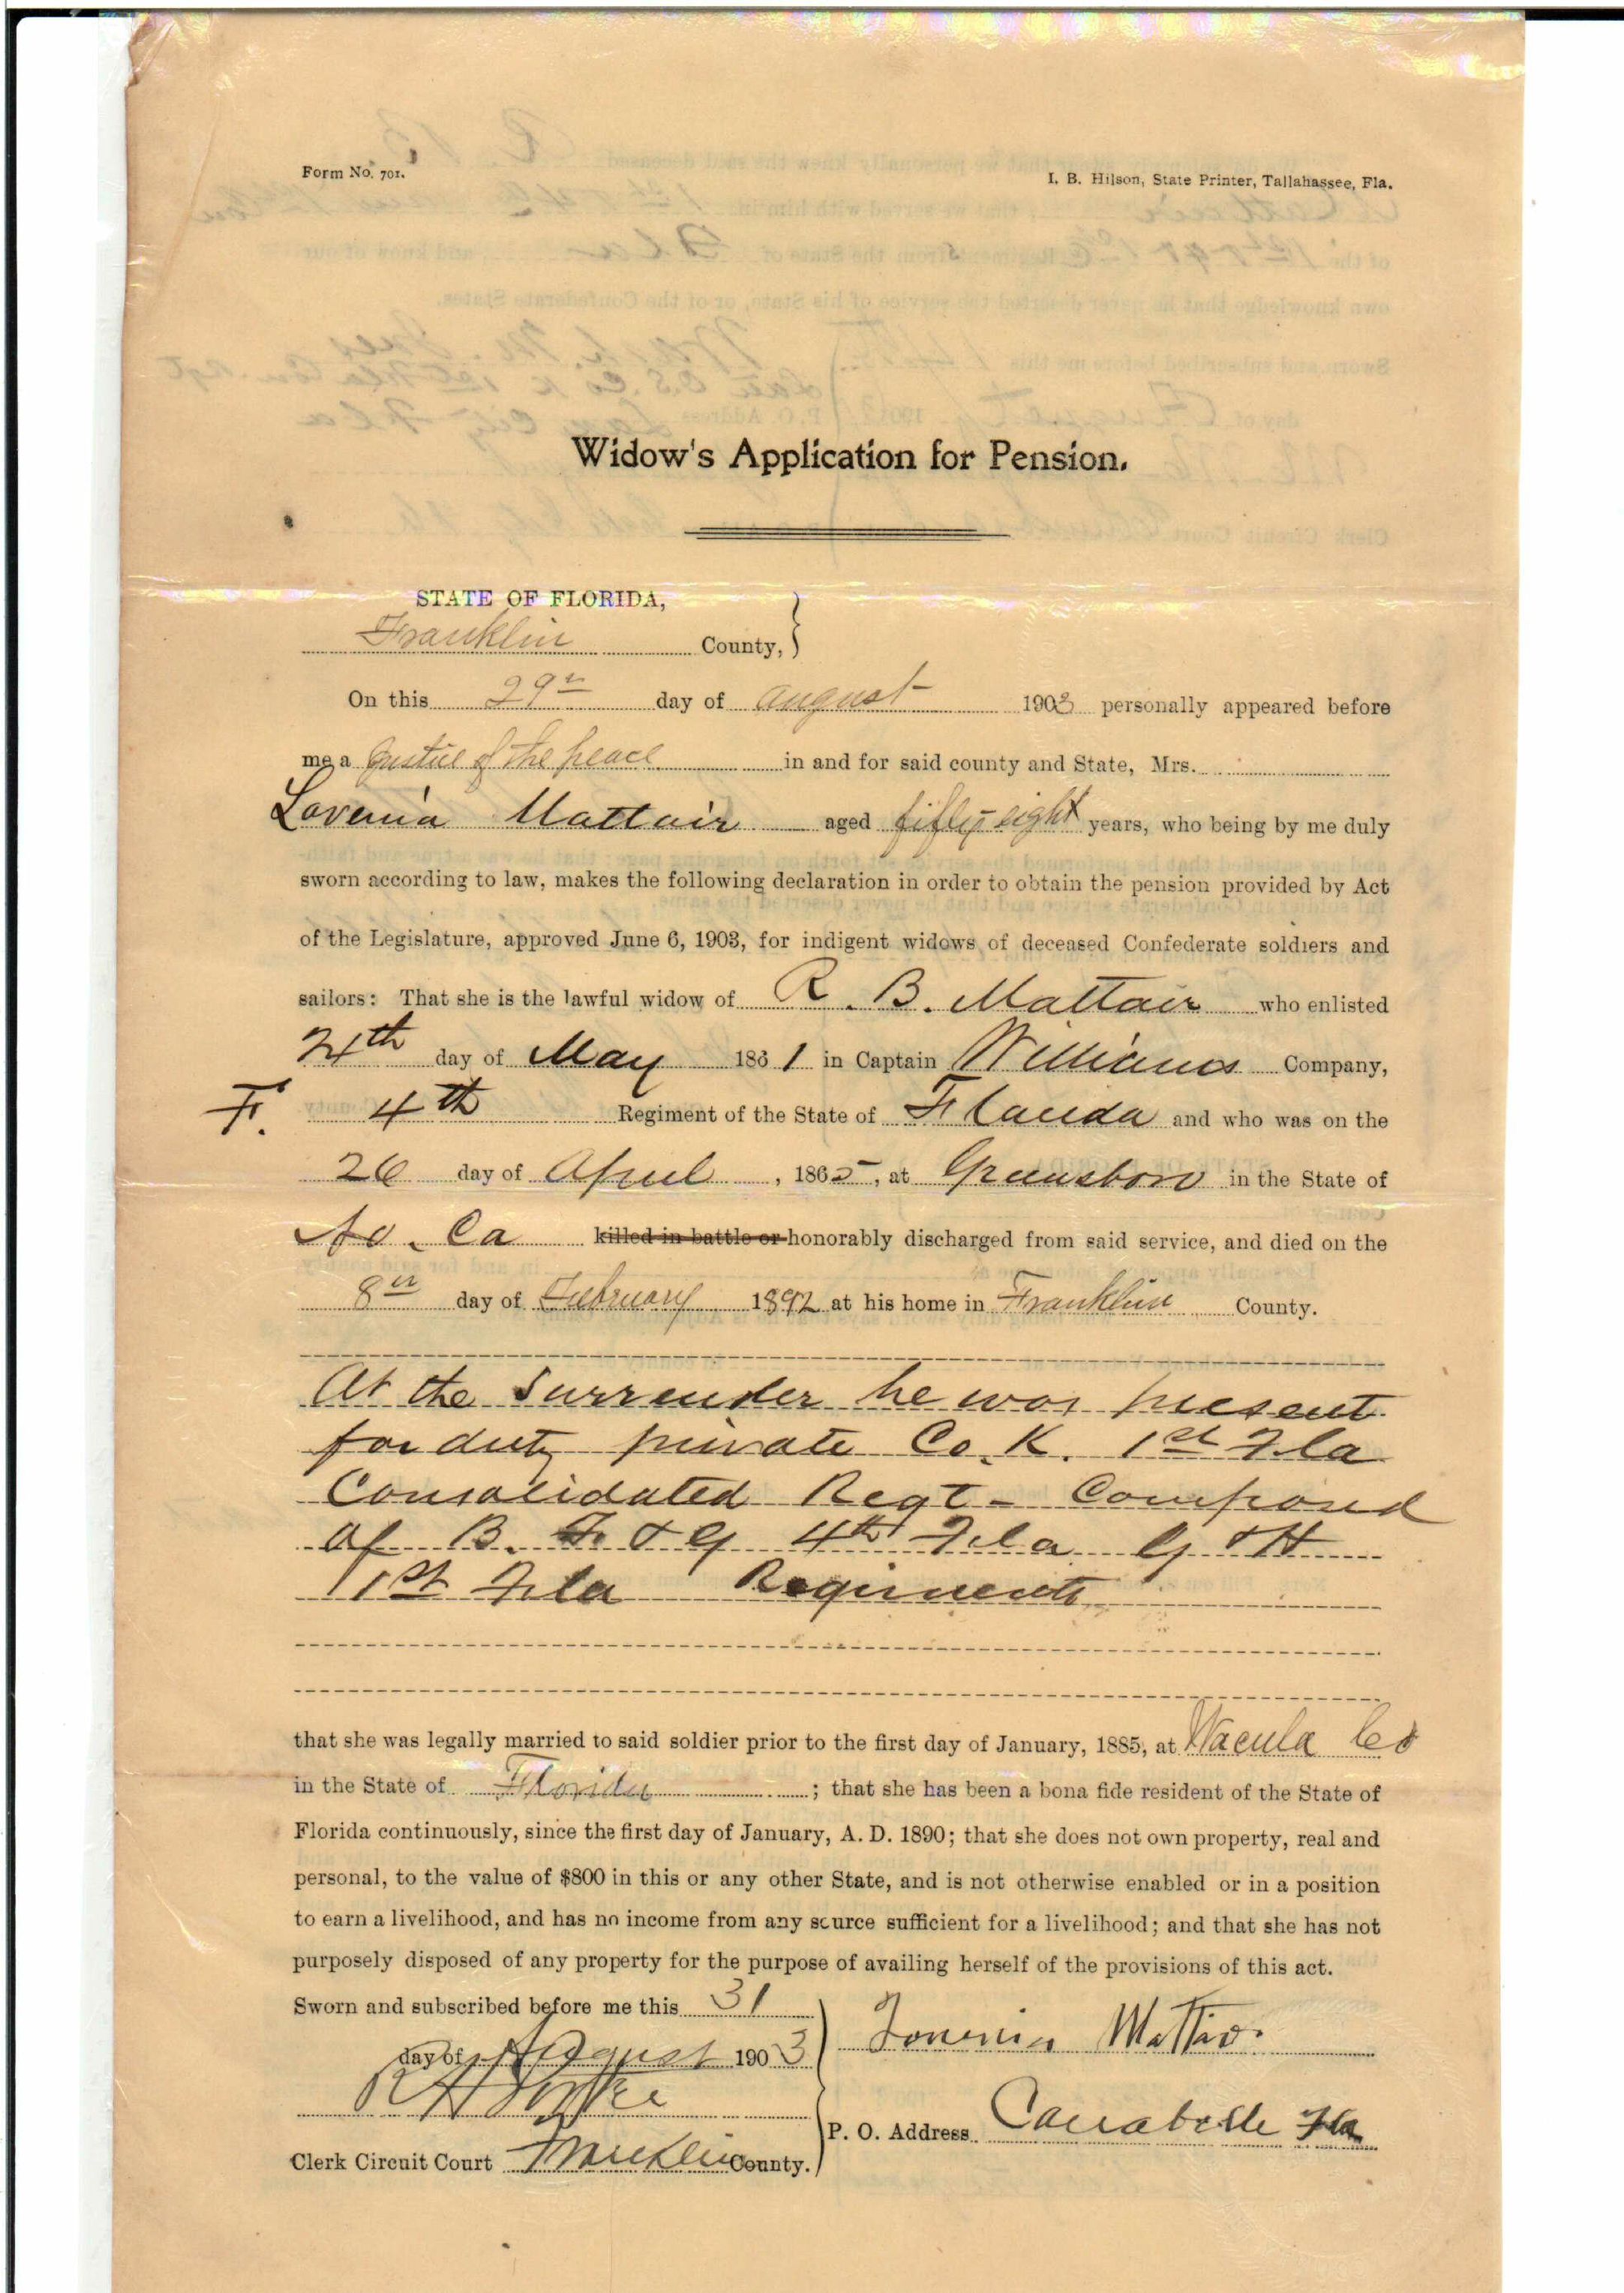 Form No. 701.
I. B. Hilson, State Printer, Tallahassee, Fla.
Widow's Application for Pension.
STATE OF FLORIDA,
Franklin County,
On this 29th day of august 1903 personally appeared before
me a Justice of the peace in and for said county and State, Mrs.
Lovenia Mattair aged fifty-eight years, who being by me duly
sworn according to law, makes the following declaration in order to obtain the pension provided by Act
of the Legislature, approved June 6, 1903, for indigent widows of deceased Confederate soldiers and
sailors: That she is the lawful widow of R. B. Mattair who enlisted
day of May 1861 in Captain Williams Company,
F. 4th Regiment of the State of Florida and who was on the
26 day of April, 1865, at Greensboro in the State of
No. Ca killed in battle or honorably discharged from said service, and died on the
8th day of February 1892 at his home in Franklin County.
At the Surrender he was present
for duty private Co. K. 1st Fla
Consolidated Regt - Composed
of B. F. & G 4th Fla G & H
1st Fla Regiments
that she was legally married to said soldier prior to the first day of January, 1885, at Wacula Co
in the State of Florida; that she has been a bona fide resident of the State of
Florida continuously, since the first day of January, A. D. 1890; that she does not own property, real and
personal, to the value of $800 in this or any other State, and is not otherwise enabled or in a position
to earn a livelihood, and has no income from any source sufficient for a livelihood; and that she has not
purposely disposed of any property for the purpose of availing herself of the provisions of this act.
Sworn and subscribed before me this 31
day of August 1903
Lovenia Mattair
R H
P. O. Address Carrabelle Fla
Clerk Circuit Court Franklin County.